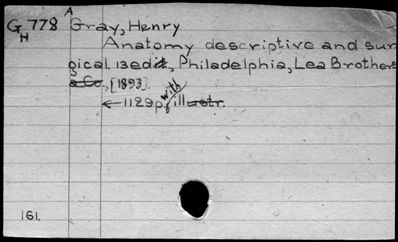 G 778 A Gray, Henry
H Anatomy descriptive and sur
gical. 13 ed., Philadelphia, Lea Brothers
& Co., [1893].
1129p, with ill
161.